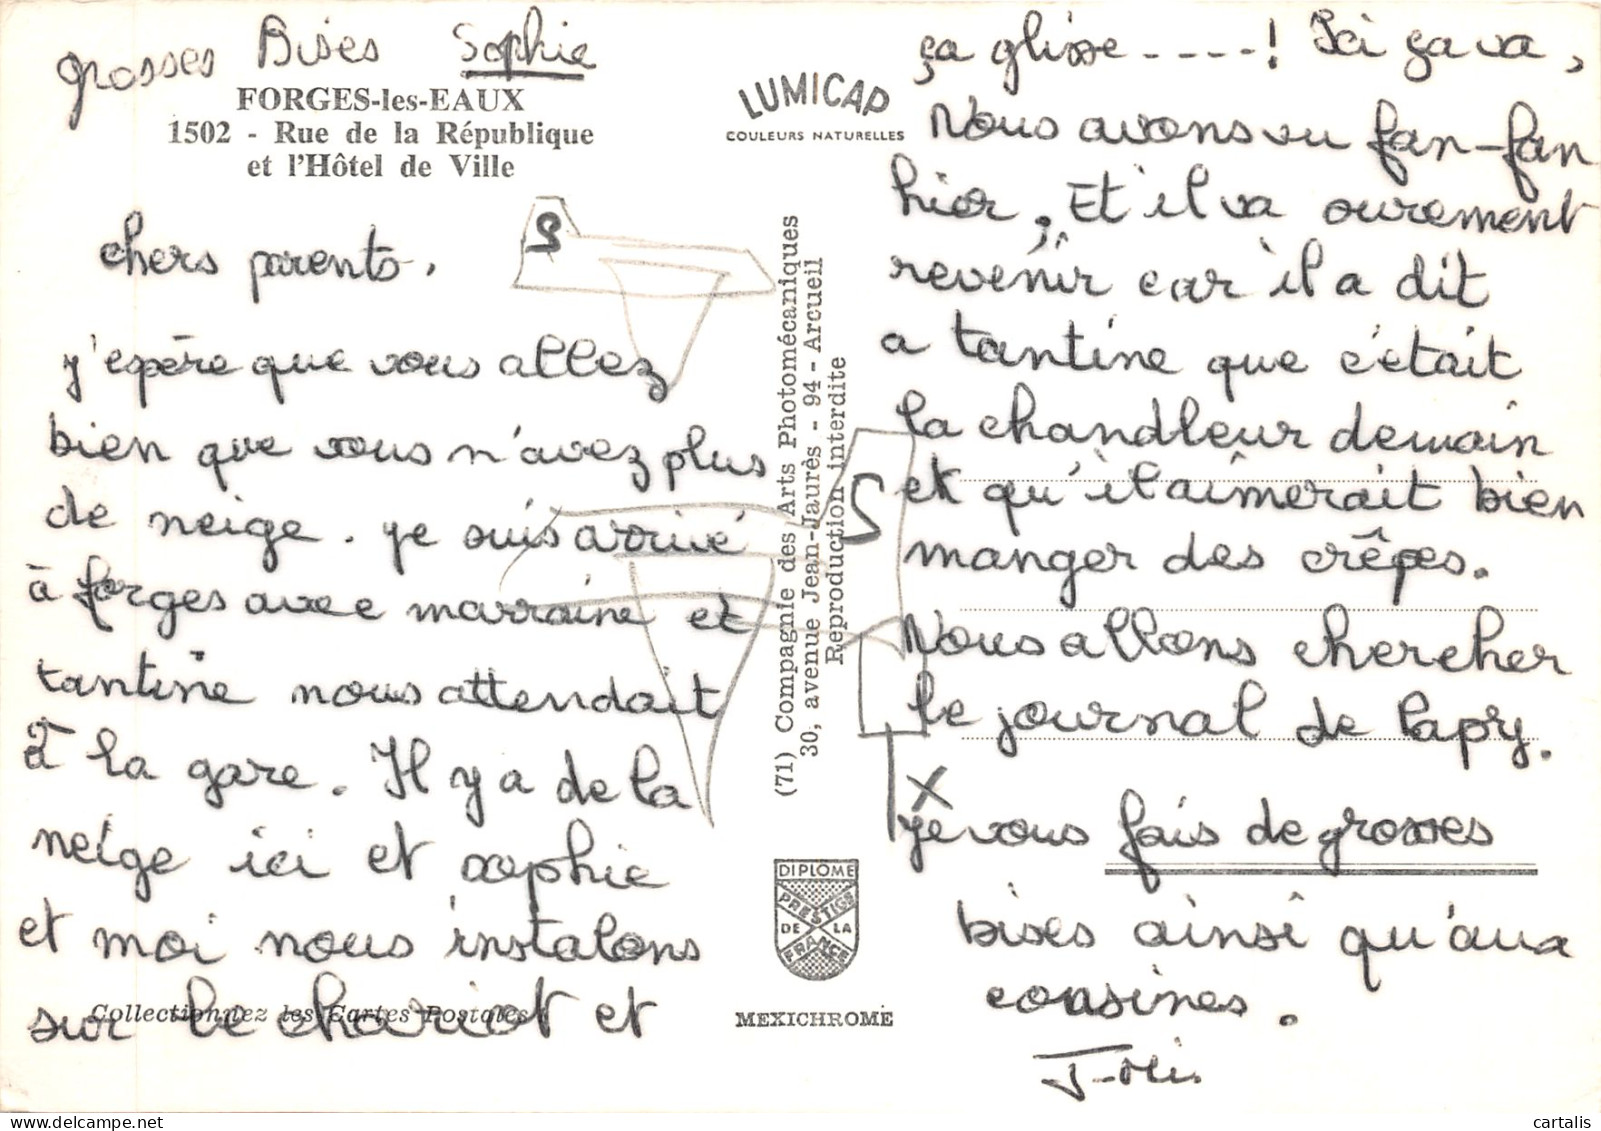 grosses Bises Sophie
FORGES-les-EAUX
1502 - Rue de la République
et l'Hôtel de Ville
chers parents.
j'espère que vous allez
bien que vous n'avez plus
de neige. je suis arrivé
à forges avec marraine et
tantine nous attendait
à la gare. Il y a de la
neige ici et sophie
et moi nous instalons
sur le chariot et
Collectionnez les Cartes Postales
LUMICAP
COULEURS NATURELLES
2
2
(71) Compagnie des Arts Photomécaniques
30, avenue Jean-Jaurès - 94 - Arcueil
Reproduction interdite
DIPLOME
PRESTIGE
DE LA
FRANCE
MEXICHROME
ça glisse - - - - ! Ici ça va,
Nous avons vu fan-fan
hier. Et il va surement
revenir car il a dit
a tantine que c'était
la chandleur demain
et qu'il aimerait bien
manger des crêpes.
Nous allons chercher
le journal de papy.
X
je vous fais de grosses
bises ainsi qu'aux
cousines.
cartalis